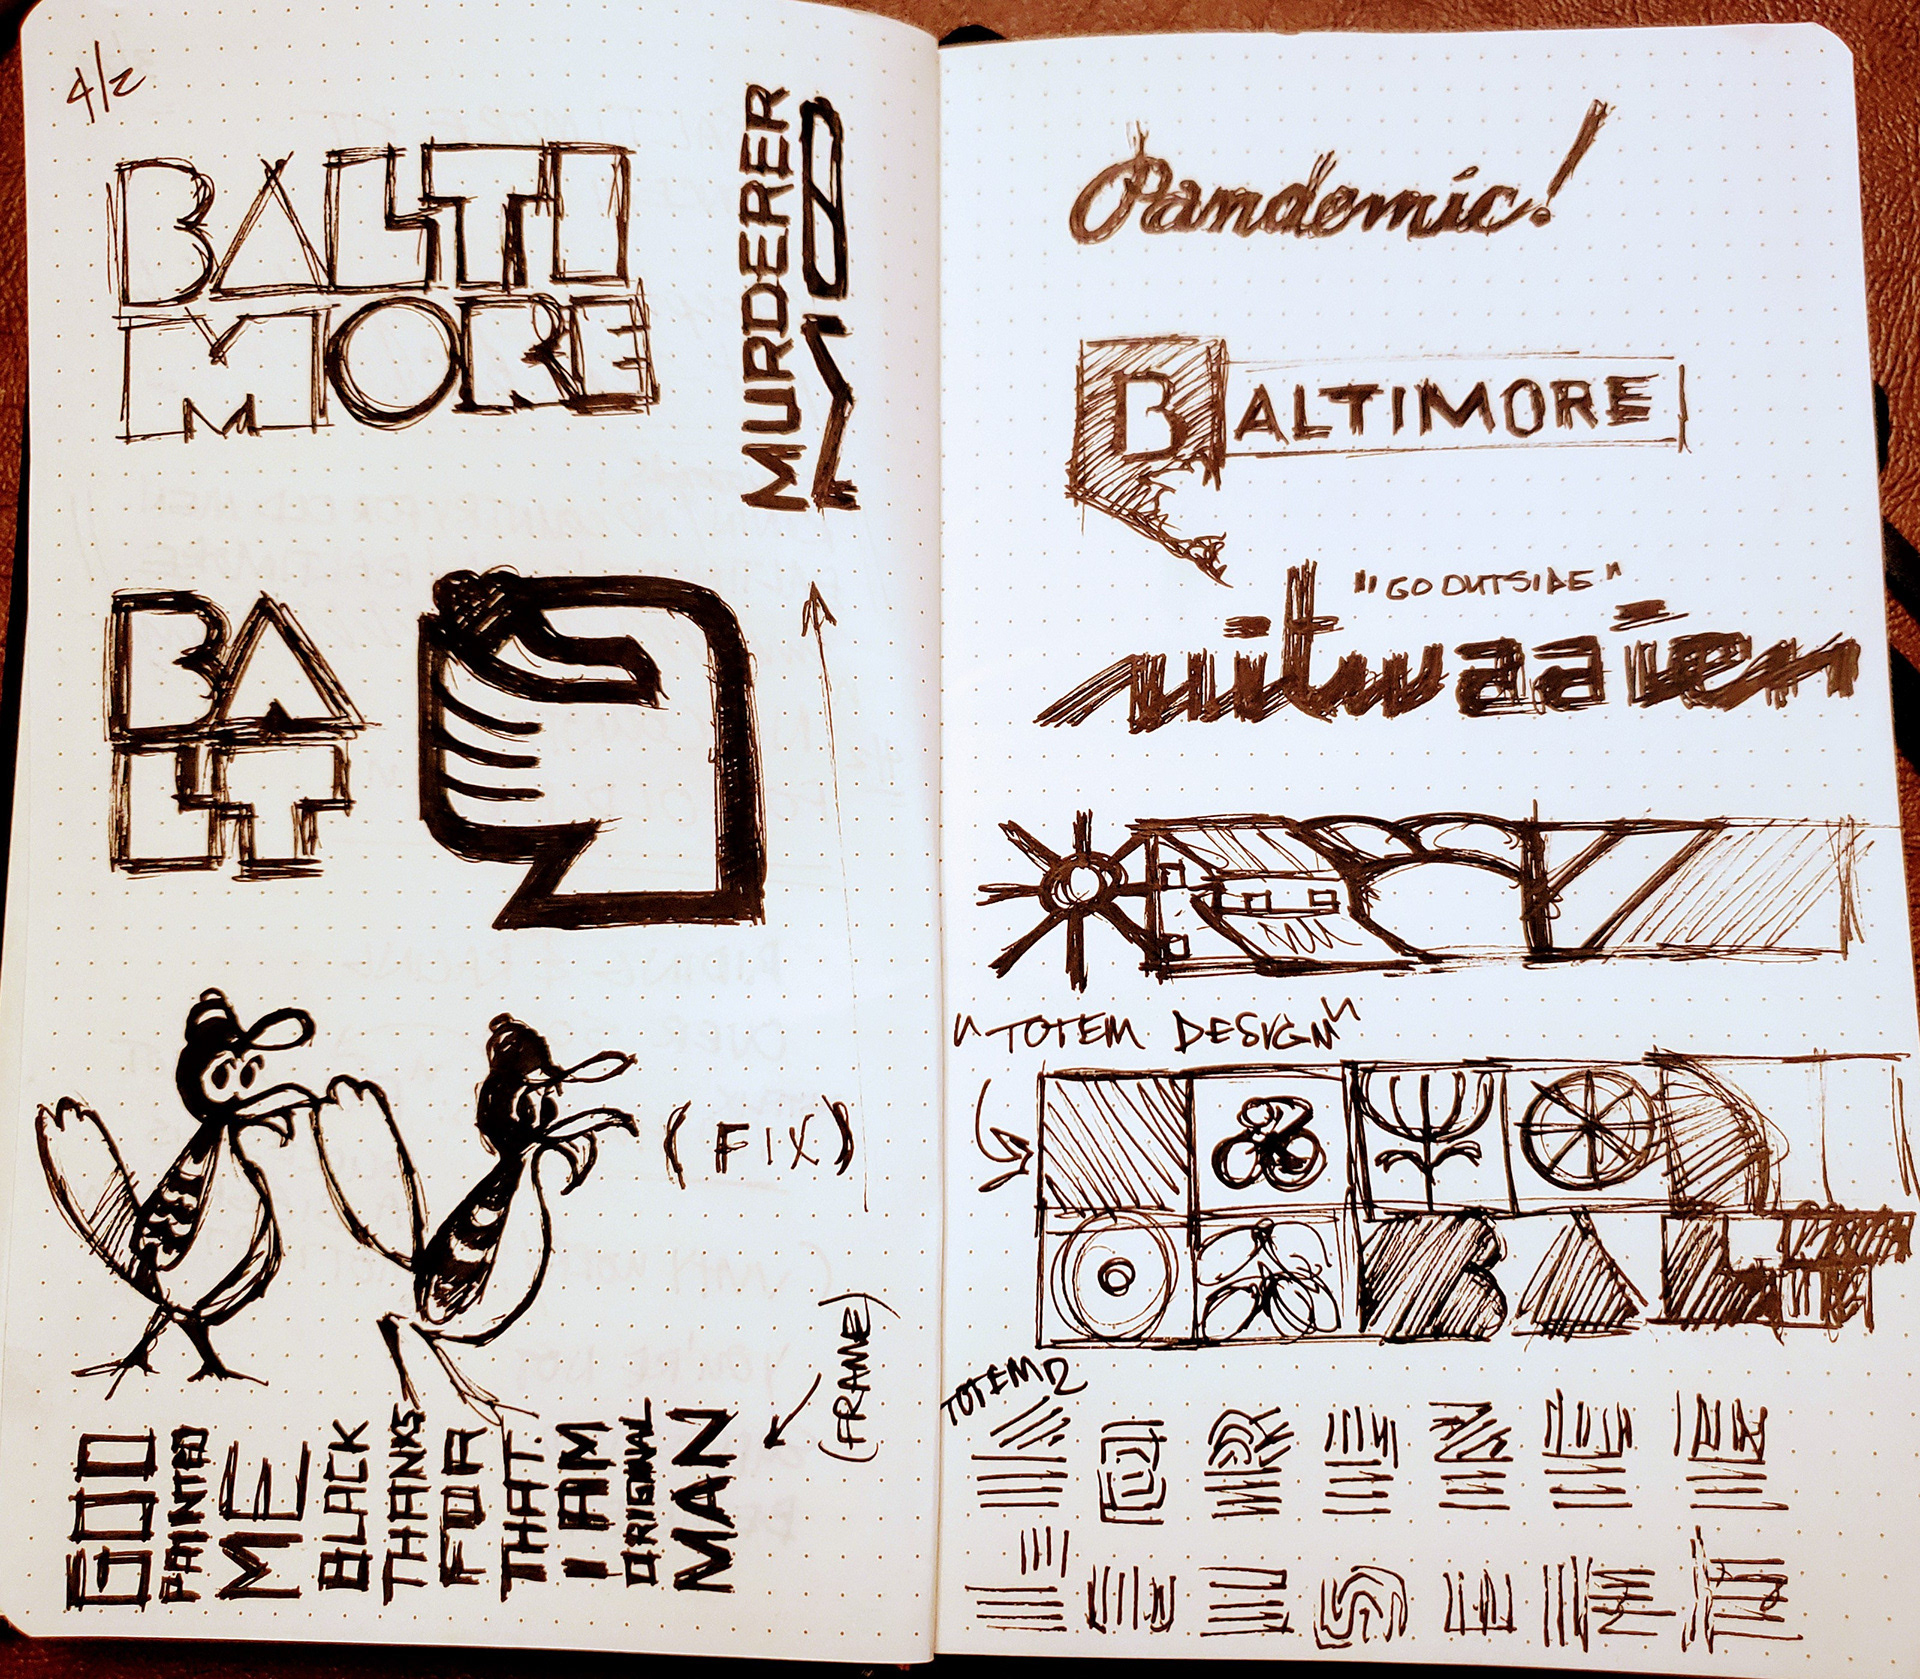 4/2
BALTI
MORE
MURDERER
BA
LT
(FIX)
(FRAME)
GOD
PAINTED
ME
BLACK
THANKS
FOR
THAT.
I AM
ORIGINAL
MAN
Pandemic!
BALTIMORE
"GO OUTSIDE"
uitwaaien
"TOTEM DESIGN"
BAL
TOTEM 2